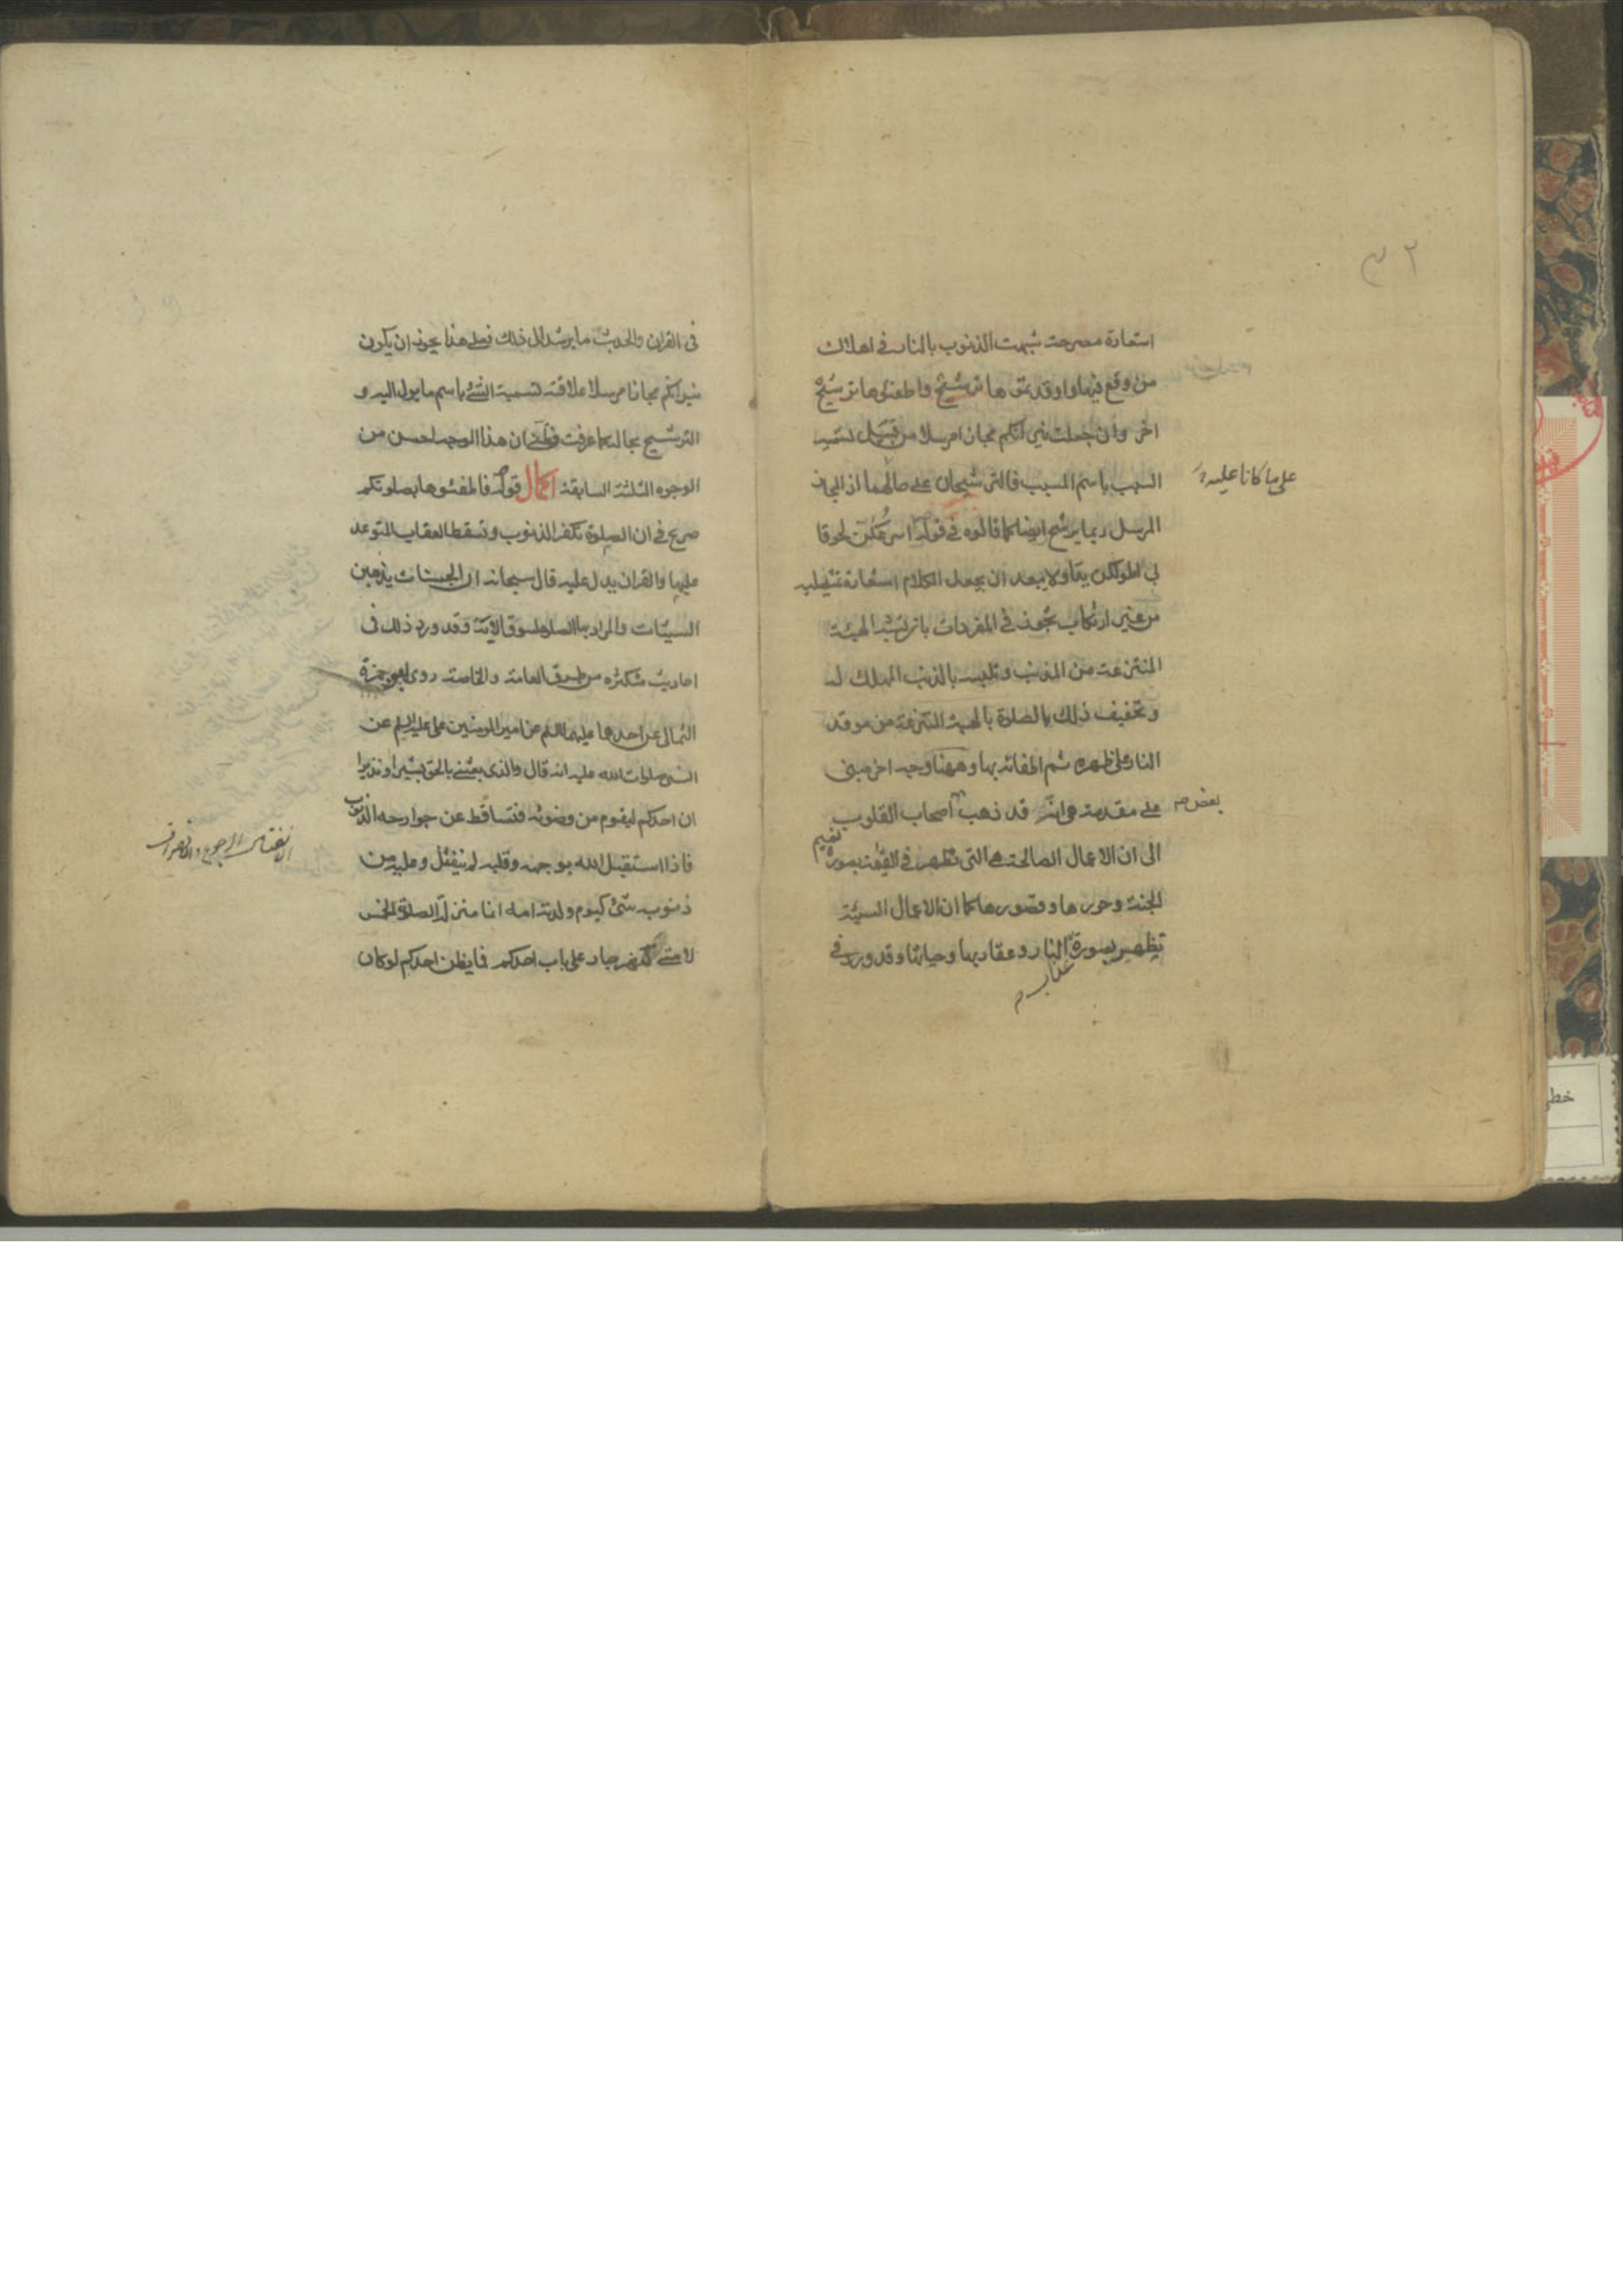 ٣٢
استعارة مصرحة شبهت الذنوب بالنار في اهلاك
من وقع فيها واوقدتموها ترشيح واطفئوها ترشيح
اخر وان جعلت نيرانكم مجازا مرسلا من قبيل تسمية
السبب باسم المسبب فالترشيحان على حالهما اذ المجاز
على ما كانا عليه
المرسل ربما يرشح ايضا كما قالوه في قوله اسرعكن لحوقا
بي اطولكن يدا ولا يبعد ان يجعل الكلام استعارة تمثيلية
من غير ارتكاب تجوز في المفردات بان يشبه الهيئة
المنتزعة من المذنب وتلبسه بالذنب المهلك له
وتخفيف ذلك بالصلاة بالهيئة المنتزعة من موقد
النار على ظهره ثم اطفائه بها وههنا وجه اخر مبني
على مقدمة هي انه قد ذهب اصحاب القلوب
بعض
الى ان الاعمال الصالحة هي التي تظهر في القيمة بصورة
نعيم
الجنة وحورها وقصورها كما ان الاعمال السيئة
تظهر بصورة النار وعقاربها وحياتها وقد ورد في
عذاب
في القران والحديث ما يرشد الى ذلك فعلى هذا يجوز ان يكون
نيرانكم مجازا مرسلا علاقته تسمية الشئ باسم ما يؤل اليه و
الترشيح بحاله كما عرفت وظني ان هذا الوجه احسن من
الوجوه الثلثة السابقة اكمال قوله فاطفئوها بصلوتكم
صريح في ان الصلوة تكفر الذنوب وتسقط العقاب المتوعد
عليها والقران يدل عليه قال سبحانه ان الحسنات يذهبن
السيئات والمراد بها الصلوة لسوق الاية وقد ورد ذلك في
احاديث متكثره من طرق العامة والخاصة روى ابو حمزة
الثمالي عن احدهما عليهما السلم عن امير المومنين على عليه السلم عن
النبي صلوات الله عليه انه قال والذي بعثني بالحق بشيرا ونذيرا
ان احدكم ليقوم من وضوئه فتساقط عن جوارحه الذنوب
فاذا استقبل الله بوجهه وقلبه لم ينفتل وعليه من
الانفتال الرجوع والانصراف
ذنوبه شئ كيوم ولدته امه انما منزلة الصلوة الخمس
لامتي كنهر جار على باب احدكم فما يظن احدكم لو كان